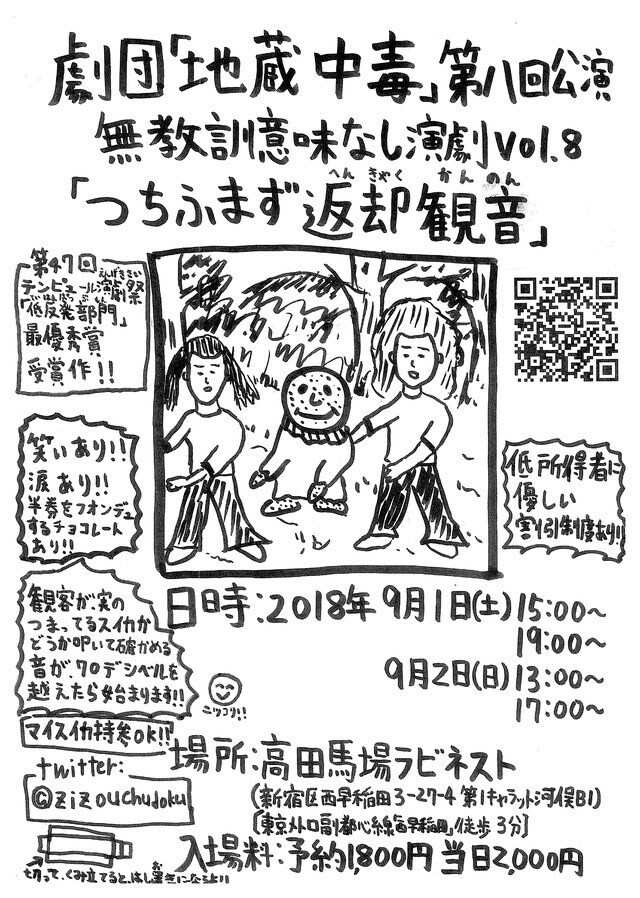 劇団「地蔵中毒」第八回公演
無教訓意味なし演劇vol.8
へんきゃく かんのん
「つちふまず返却観音」
第47回
えんげきさい
テンピュール演劇祭
「低反発部門」
最優秀賞
受賞作!!
笑いあり!!
涙あり!!
半券をフォンデュ
するチョコレート
あり!!
低所得者に
優しい
割引制度あり!!
観客が、実の
つまってるスイカか
どうか叩いて確かめる
音が、70デシベルを
越えたら始まります!!
ニッコリ!!
マイスイカ持参OK!!
twitter:
@zizouchudoku
日時:2018年9月1日(土)15:00~
19:00~
9月2日(日)13:00~
17:00~
場所:高田馬場ラビネスト
(新宿区西早稲田3-27-4 第1キャラット河俣B1)
[東京メトロ副都心線「西早稲田」徒歩3分]
入場料:予約1,800円 当日2,000円
切って、くみ立てると、はし置きになるよ!!